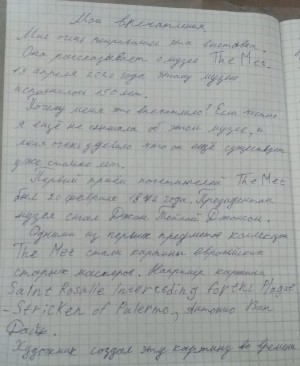 Мои впечатления
Мне очень понравилась эта выставка.
Она рассказывает о музее The Met.
13 апреля 2020 года этому музею
исполнилось 150 лет.
Почему меня это впечатлило? Если честно
я ещё не слышала об этом музее, и
меня очень удивило что он ещё существует
уже столько лет.
Первый приём посетителей The Met
был 20 февраля 1872 года. Президентом
музея стал Джон Тейлор Джонсон.
Одними из первых предметов коллекции
The Met стали картины европейских
старых мастеров. Например картина
Saint Rosalie Interceding for the Plague
-Stricken of Palermo, Антонио Ван
Дейк.
Художник создал эту картину во времена